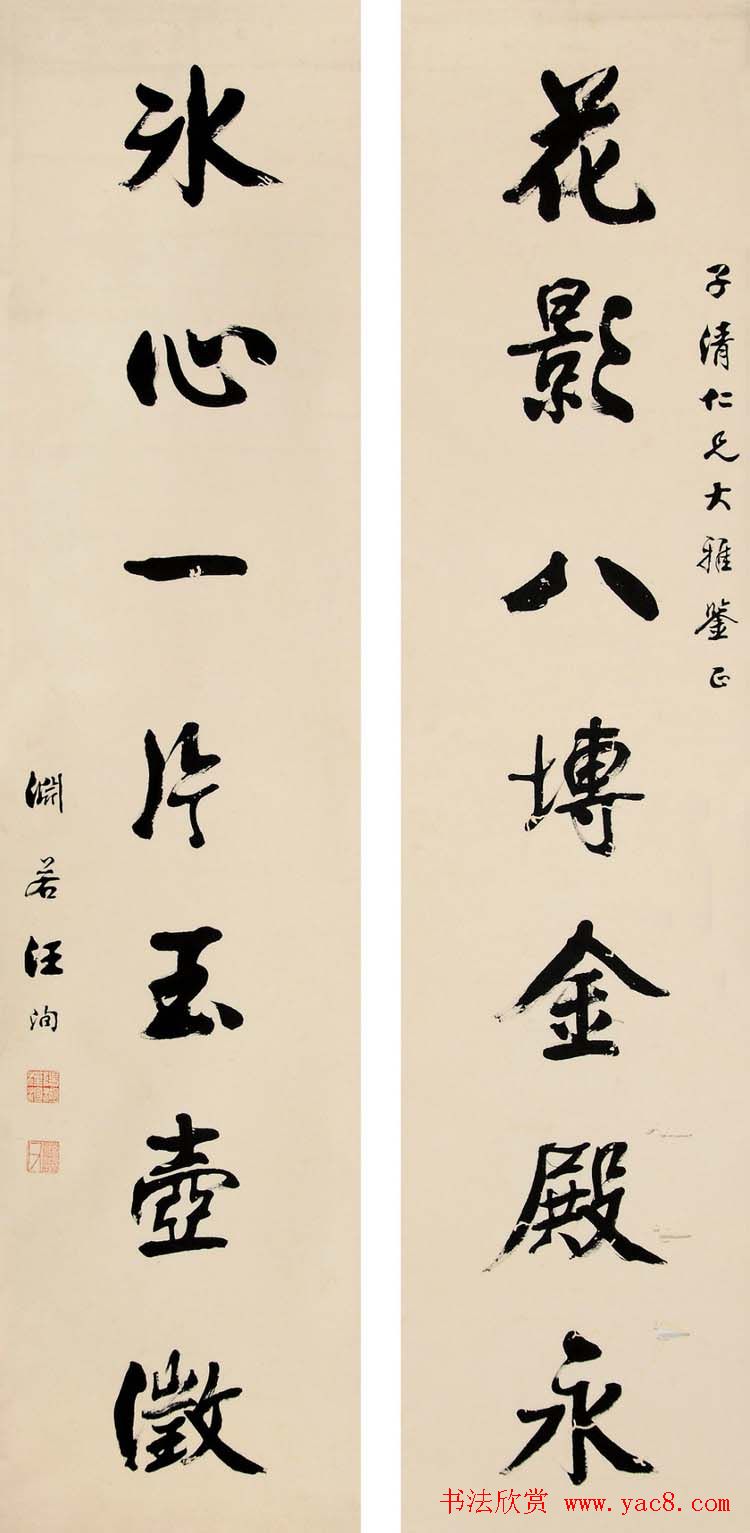 子清仁兄大雅鉴正
花影八塼金殿永
冰心一片玉壺徵
渊若汪洵
书法欣赏 www.yac8.com